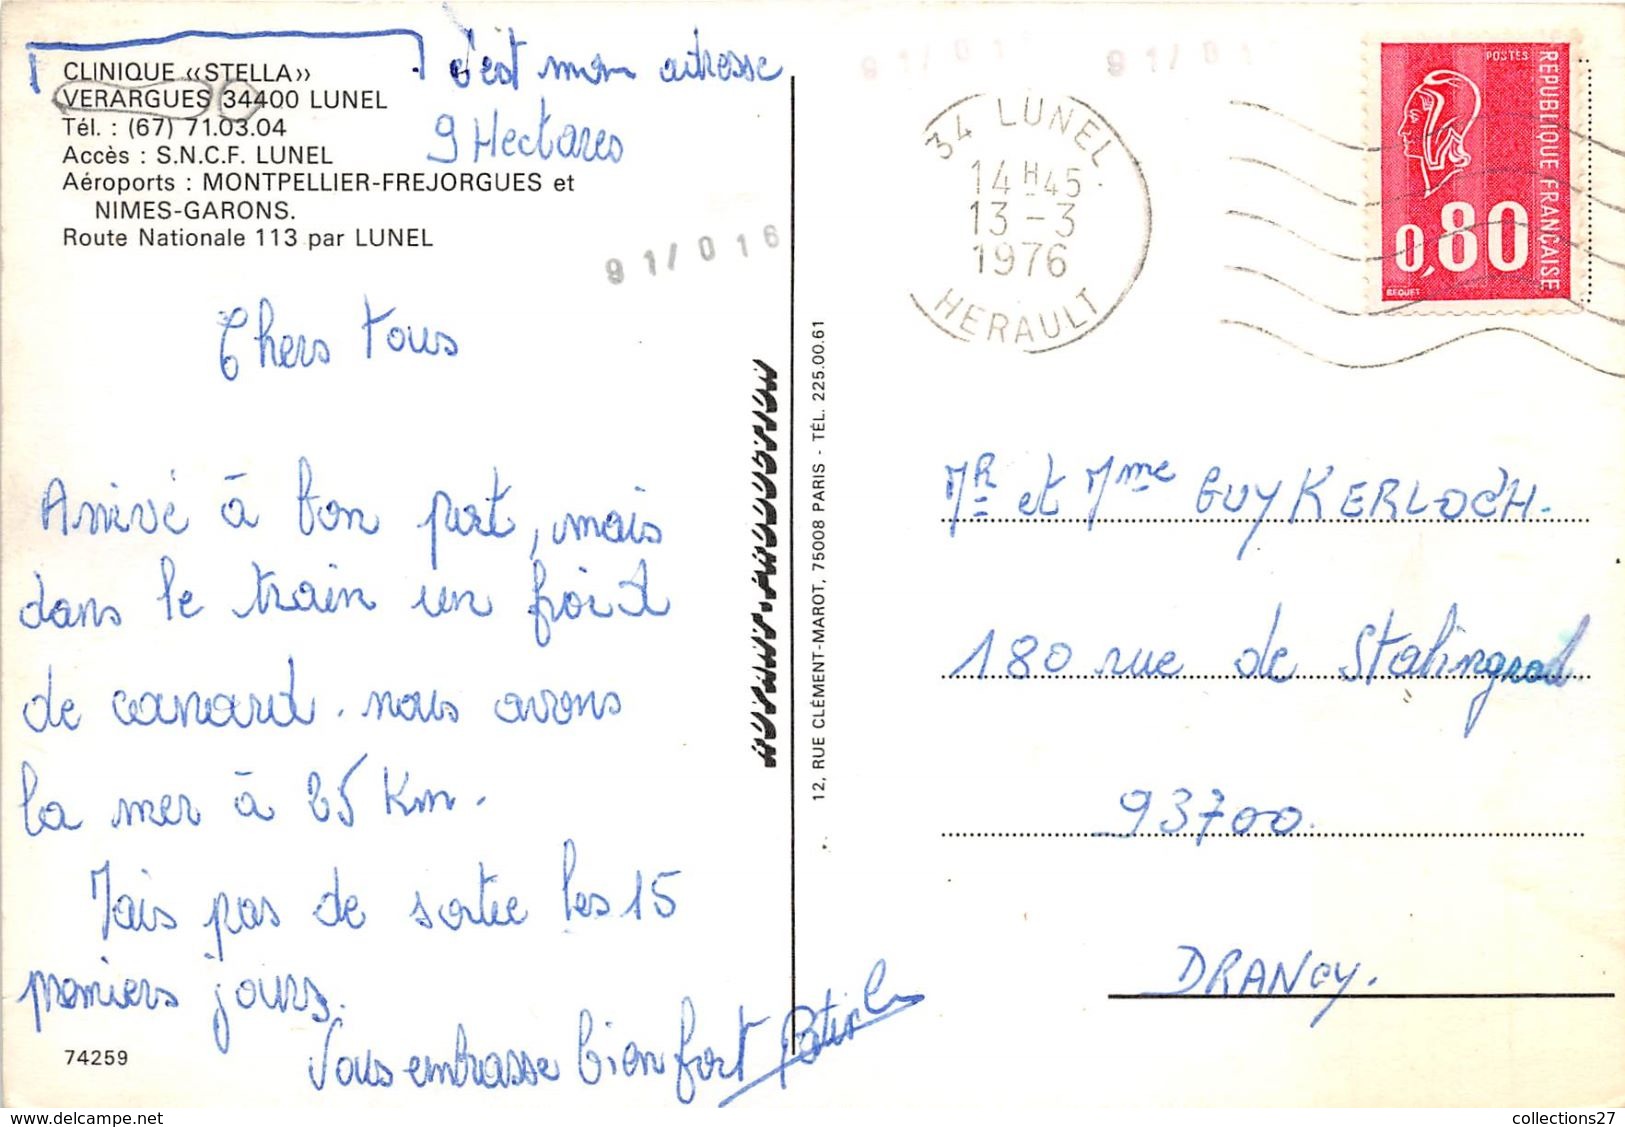 c'est mon adresse
CLINIQUE «STELLA»
VERARGUES 34400 LUNEL
Tél. : (67) 71.03.04
9 Hectares
Accès : S.N.C.F. LUNEL
Aéroports : MONTPELLIER-FREJORGUES et
NIMES-GARONS.
Route Nationale 113 par LUNEL
91/016
Chers tous
Arrivé à bon port, mais
dans le train un froid
de canard. nous avons
la mer à 25 Km.
Mais pas de sortie les 15
premiers jours.
Vous embrasse bien fort
74259
12, RUE CLÉMENT-MAROT, 75008 PARIS - TÉL. 225.00.61
91/01
91/01
34 LUNEL
14 H 45
13 - 3
1976
HERAULT
POSTES
REPUBLIQUE FRANÇAISE
0,80
BEQUET
MR et Mme GUY KERLOC'H.
180 rue de Stalingrad
93700.
DRANCY.
delcampe.net
collections27